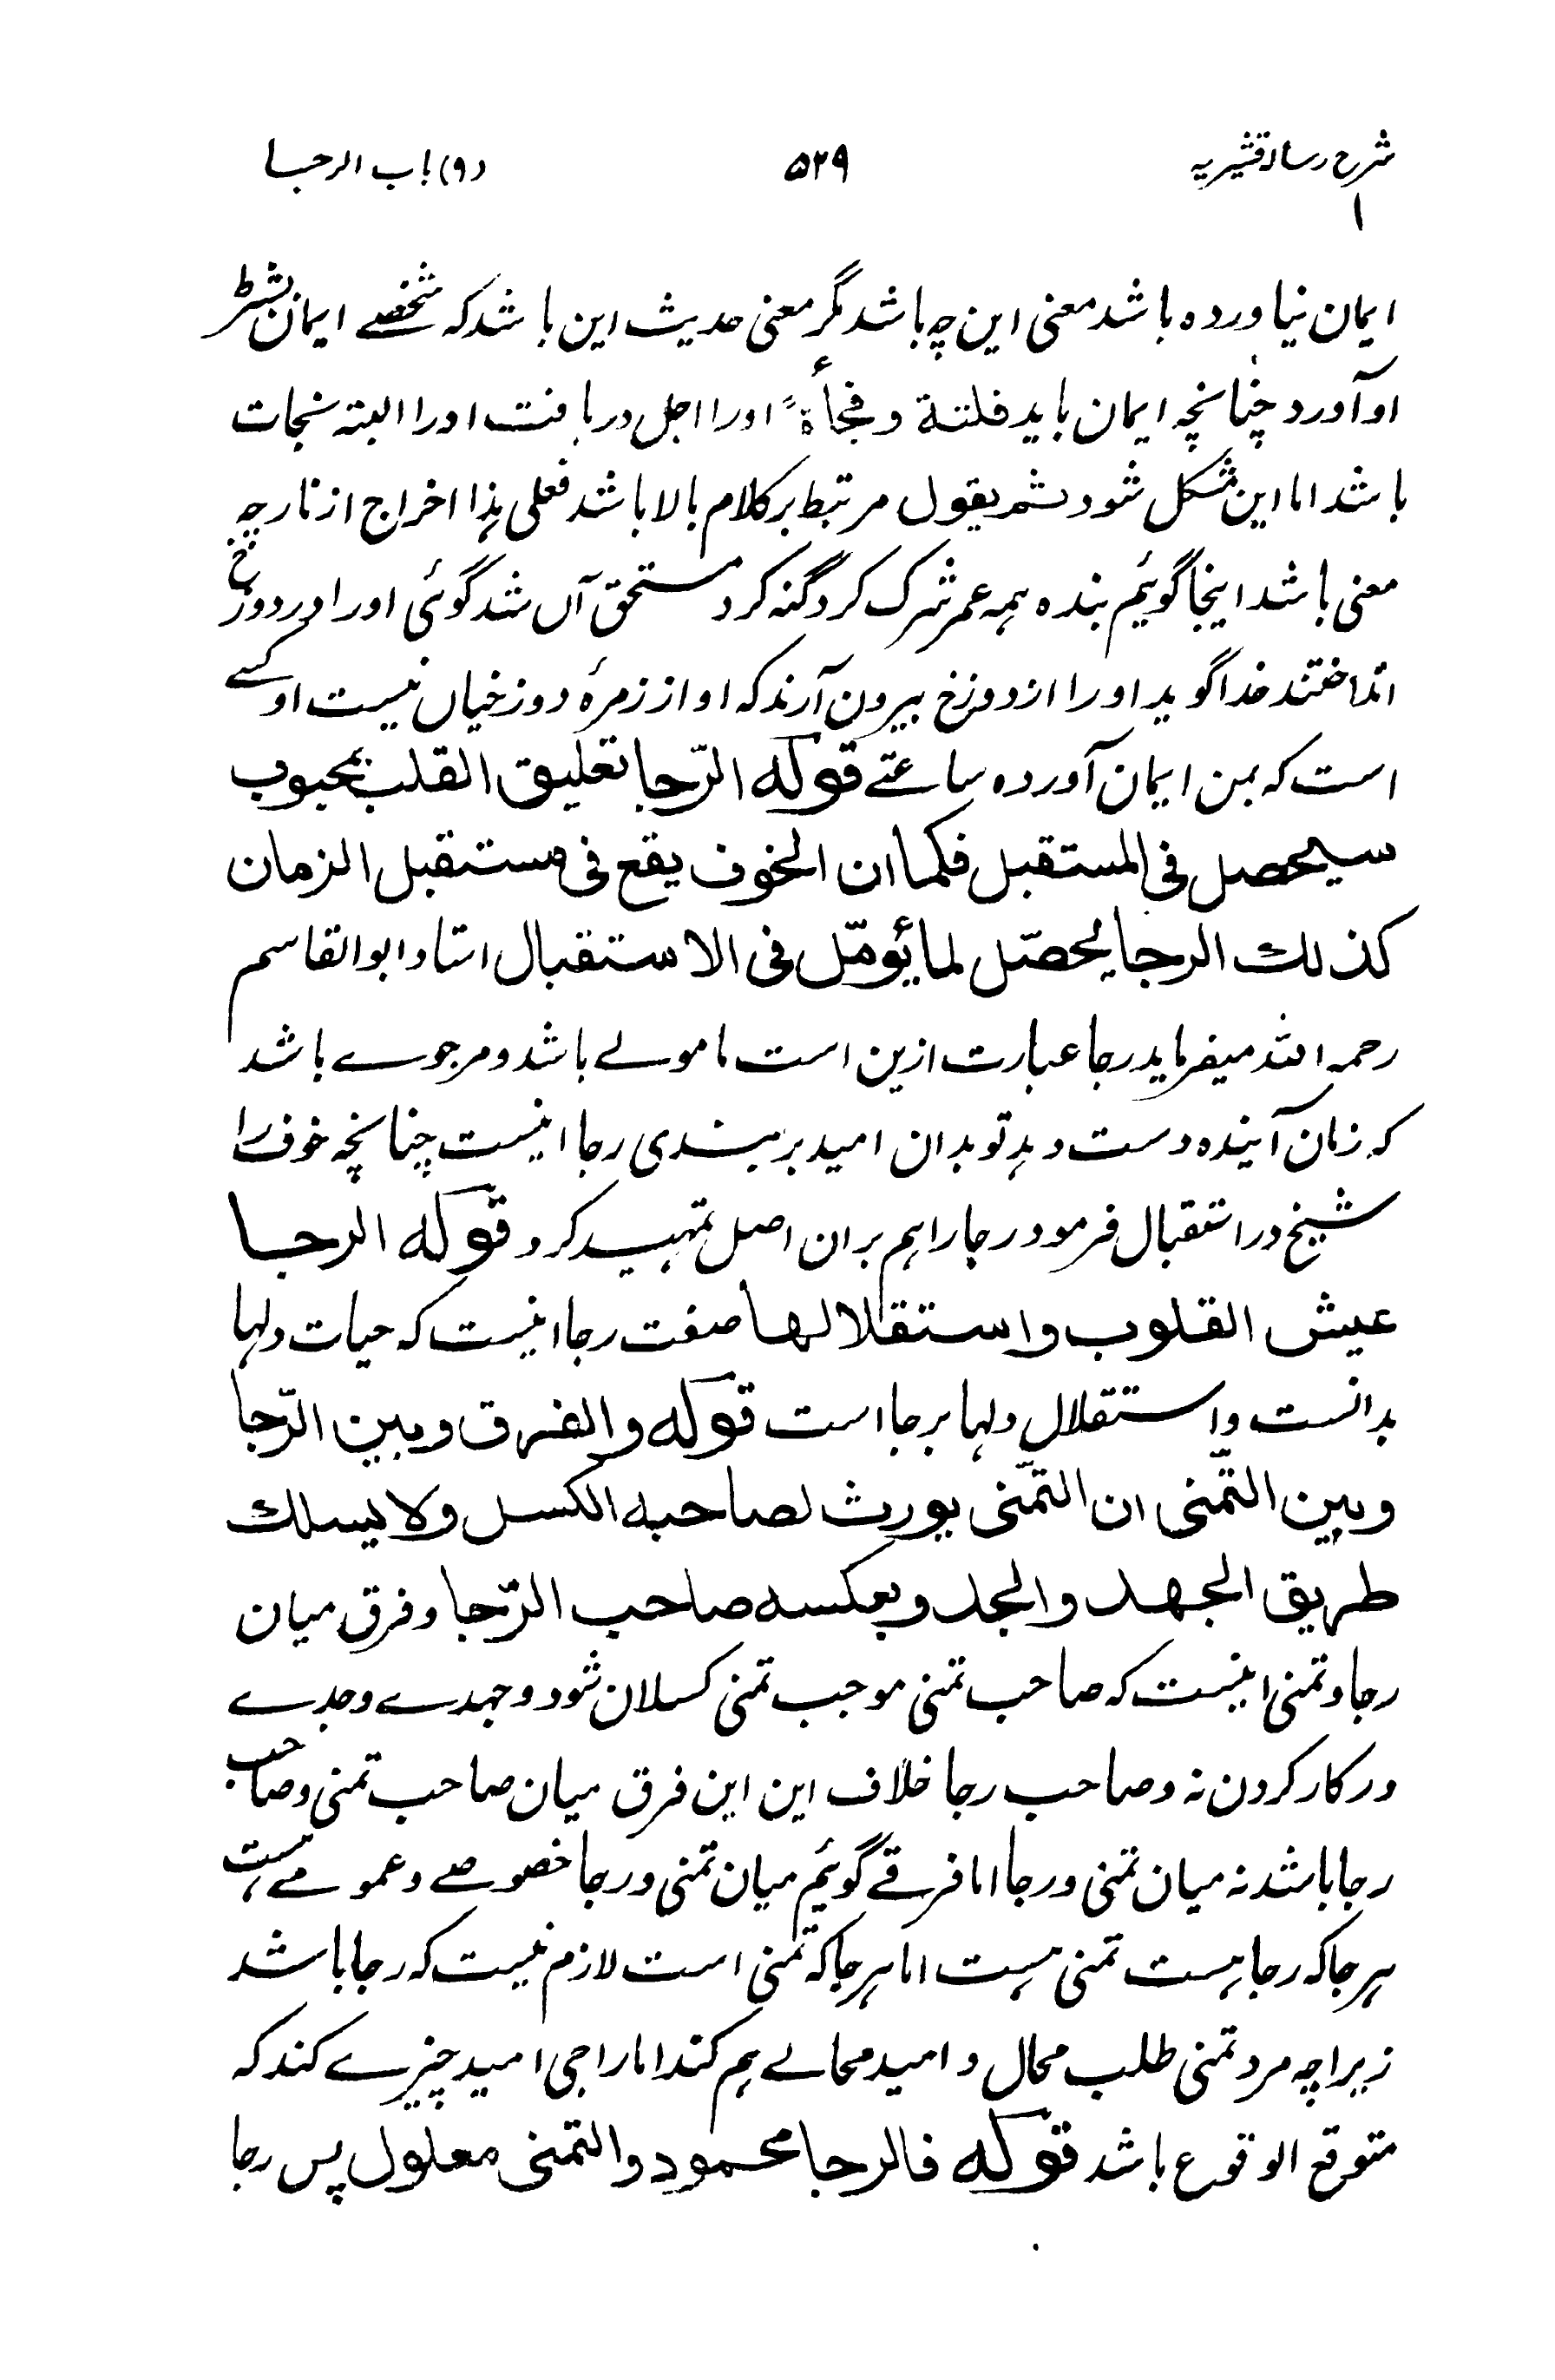 شرح رسالہ قشیریہ ۵۲۹ (۹) باب الرجا
ا
ایمان نیاورده باشد معنی این چہ باشد مگر معنی حدیث این باشد کہ شخصے ایمان بشرط
او آورد چنانچہ ایمان باید فلتة وفجأةً اورا اجل دریافت اورا البتہ نجات
باشد اما این مشکل شود ثم یقول مرتبط بر کلام بالا باشد فعلی ہذا اخراج از نار چہ
معنی باشد اینجا گوئیم بنده ہمہ عمر شرک کرد گنہ کرد مستحق آں شد گوئی اورا در دوزخ
انداختند خدا گوید اورا از دوزخ بیرون آرند کہ او از زمرۂ دوزخیاں نیست او کسے
است کہ بمن ایمان آورده ساعتے قوله الرّجا تعلیق القلب بمحبوب
سیحصل فی المستقبل فکما ان الخوف یقع فی مستقبل الزمان
کذلك الرجا یحصّل لما یؤمّل فی الاستقبال استاد ابوالقاسم
رحمہ اللہ میفرماید رجا عبارت ازین است ماموے باشد و مرجوے باشد
کہ زمان آینده دست دہد تو بدان امید بربندی رجا اینست چنانچہ خوف را
شیخ در استقبال فرمود رجا را ہم بران اصل تمہید کرد قوله الرجا
عیش القلوب واستقلالها صفت رجا اینست کہ حیات دلہا
بدانست و استقلال دلہا برجا است قوله والفرق وبین الرّجا
وبین التّمنی ان التّمنی یورث لصاحبه الکسل ولا یسلك
طریق الجهد والجد وبعکسه صاحب الرّجا و فرق میان
رجا و تمنی اینست کہ صاحب تمنی موجب تمنی کسلان شود و جہدے و جدے
در کار کردن نہ و صاحب رجا خلاف این این فرق میان صاحب تمنی و صاحب
رجا باشد نہ میان تمنی و رجا اما فرقے گوئیم میان تمنی و رجا خصوصے و عمومے ہست
ہر جا کہ رجا ہست تمنی ہست اما ہر جا کہ تمنی است لازم نیست کہ رجا باشد
زیرا چہ مرد تمنی طلب محال و امید محالے ہم کند اما راجی امید چیزے کند کہ
متوقع الوقوع باشد قوله فالرجا محمود والتمنی معلول پس رجا